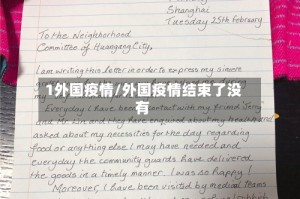 Shanghai
Tuesday 25th february
To the Neighborhood
Committee of HuangGang,
I am writing this letter in order to express my sincere
1外国疫情/外国疫情结束了没
有
Everyday I have been contact with my friend
and have enquired about my health and
asked about my necessities for the day regarding
food or anything else I may have needed and
everyday the community guards have delivered
the goods in a timely manner. I was so happy!
Moreover, I have been visited by medical teams